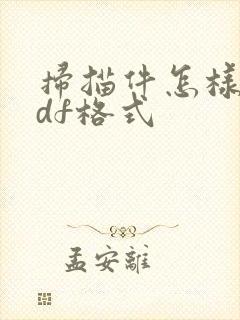 掃描件怎樣
df格式
孟安離